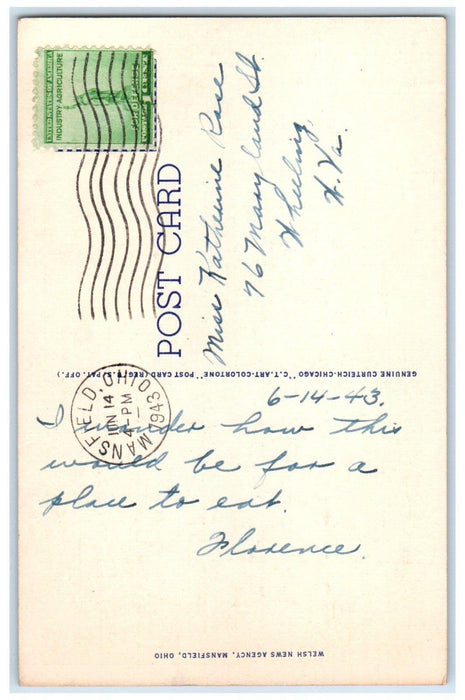 UNITED STATES OF AMERICA
INDUSTRY AGRICULTURE
FOR DEFENSE
1 CENT
POSTAGE
MANSFIELD, OHIO
JUN 14
4-PM
1943
POST CARD
Miss Katherine Rose
76 Maryland St.
Wheeling,
W. Va.
GENUINE CURTEICH-CHICAGO "C.T. ART-COLORTONE" POST CARD (REG. U.S. PAT. OFF.)
6-14-43.
I wonder how this
would be for a
place to eat.
Florence.
WELSH NEWS AGENCY, MANSFIELD, OHIO